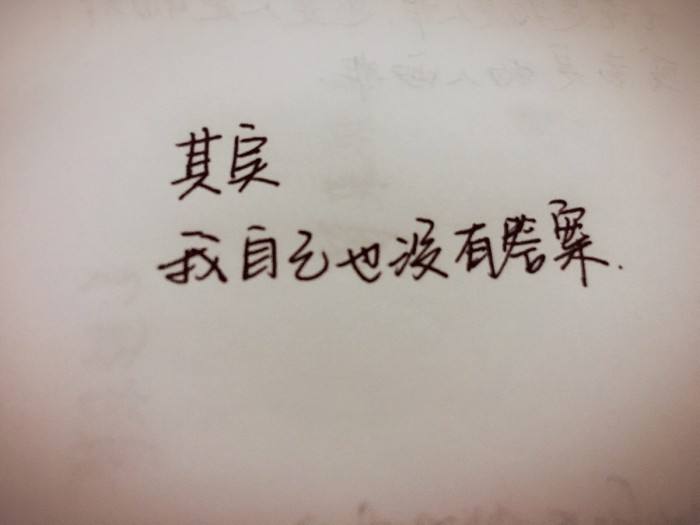 其实
我自己也没有答案.